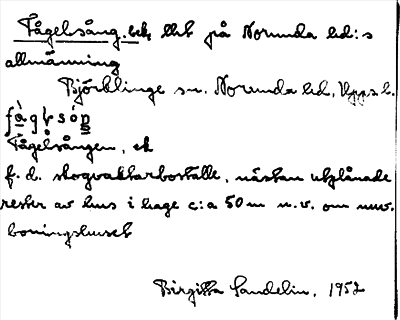 Fågelsång, bet, llt på Norunda hd:s
allmänning
Björklinge sn. Norunda hd, Upps. l.
Fågelsången, et
f. d. skogvaktarboställe, nästan utplånade
rester av hus i hage c:a 50 m n.v. om nuv.
boningshuset
Birgitta Sandelin, 1952